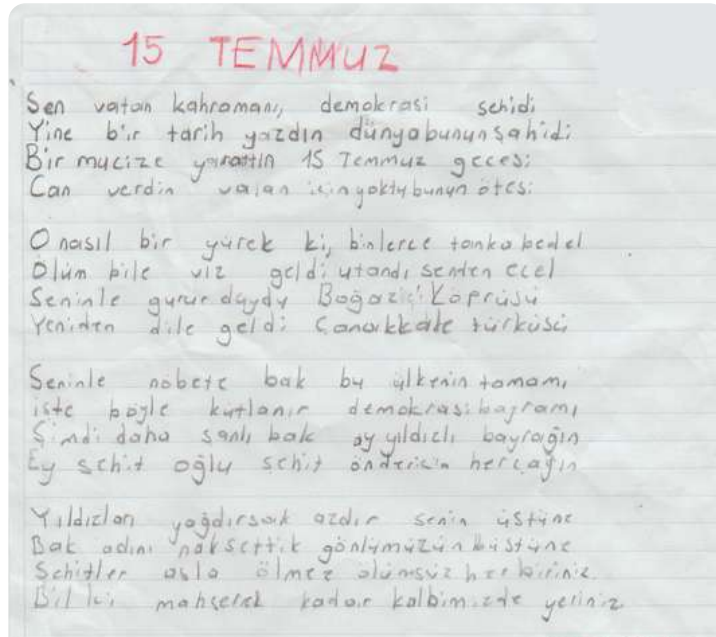 15 TEMMUZ
Sen vatan kahramanı, demokrasi şehidi
Yine bir tarih yazdın dünya bunun şahidi
Bir mucize yarattın 15 Temmuz gecesi
Can verdin vatan için yoktu bunun ötesi
O nasıl bir yürek ki, binlerce tanka bedel
Ölüm bile vız geldi utandı senden ecel
Seninle gurur duydu Boğaziçi Köprüsü
Yeniden dile geldi Çanakkale türküsü
Seninle nöbete bak bu ülkenin tamamı
işte böyle kutlanır demokrasi bayramı
Şimdi daha şanlı bak ay yıldızlı bayrağın
Ey şehit oğlu şehit önderisin her çağın
Yıldızları yağdırsak azdır senin üstüne
Bak adını nakşettik gönlümüzün büstüne
Şehitler asla ölmez ölümsüz her biriniz
Bil ki mahşerek kadar kalbimizde yeriniz